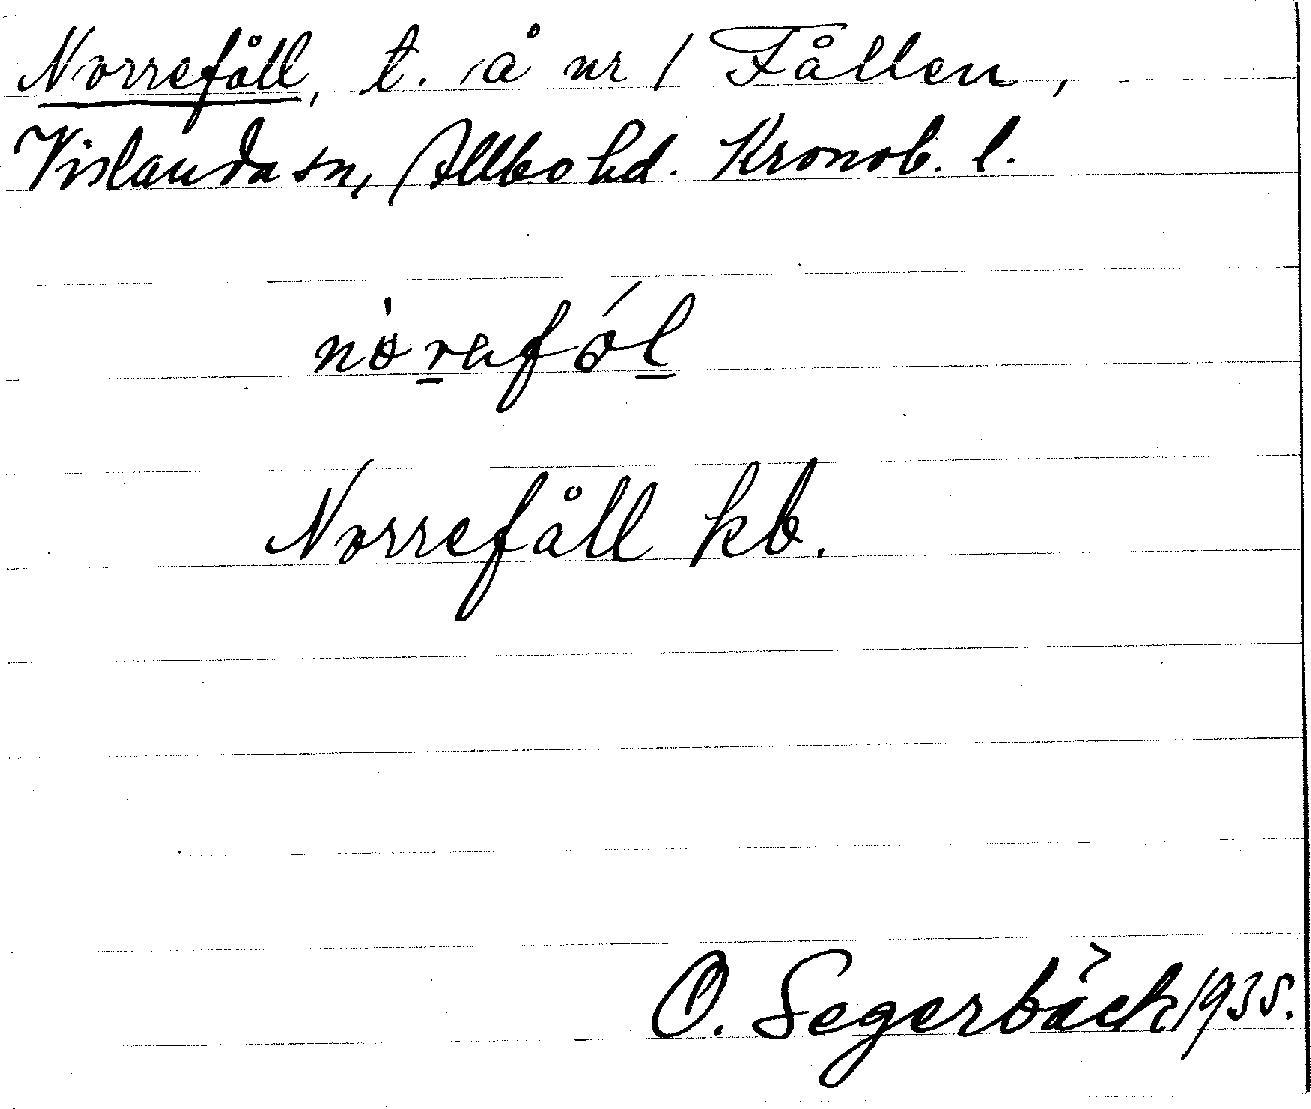 Norrefåll, t. å nr 1 Fållen,
Vislanda sn, Allbo hd. Kronob. l.
nòrefól
Norrefåll kb.
O. Segerbäck 1935.